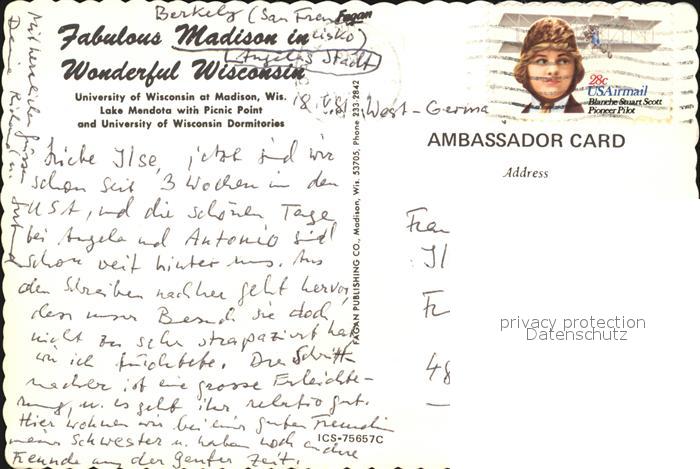 Berkely (San Fran
cisko)
Angelas Stadt
Fagan
Fabulous Madison in
Wonderful Wisconsin
University of Wisconsin at Madison, Wis.
Lake Mendota with Picnic Point
and University of Wisconsin Dormitories
Liebe Ilse, jetzt sind wir
schon seit 3 Wochen in den
USA, und die schönen Tage
bei Angela und Antonio sind
schon weit hinter uns. Aus
dem Schreiben nachher geht hervor,
dass unser Besuch sie doch
nicht zu sehr strapaziert hat
wie ich fürchtete.
nachher ist eine grosse Erleichte-
rung, u. es geht ihr relativ gut.
Hier wohnen wir bei einer guten Freundin
meiner Schwester u. haben noch andre
Freunde aus der Genfer Zeit.
Mit herzlichen Grüssen
Deine
FAGAN PUBLISHING CO., Madison, Wis. 53705, Phone 233-2842
ICS-75657C
West-Germa
28c
USAirmail
Blanche Stuart Scott
Pioneer Pilot
AMBASSADOR CARD
Address
Frau
Il
Fr
48
privacy protection
Datenschutz